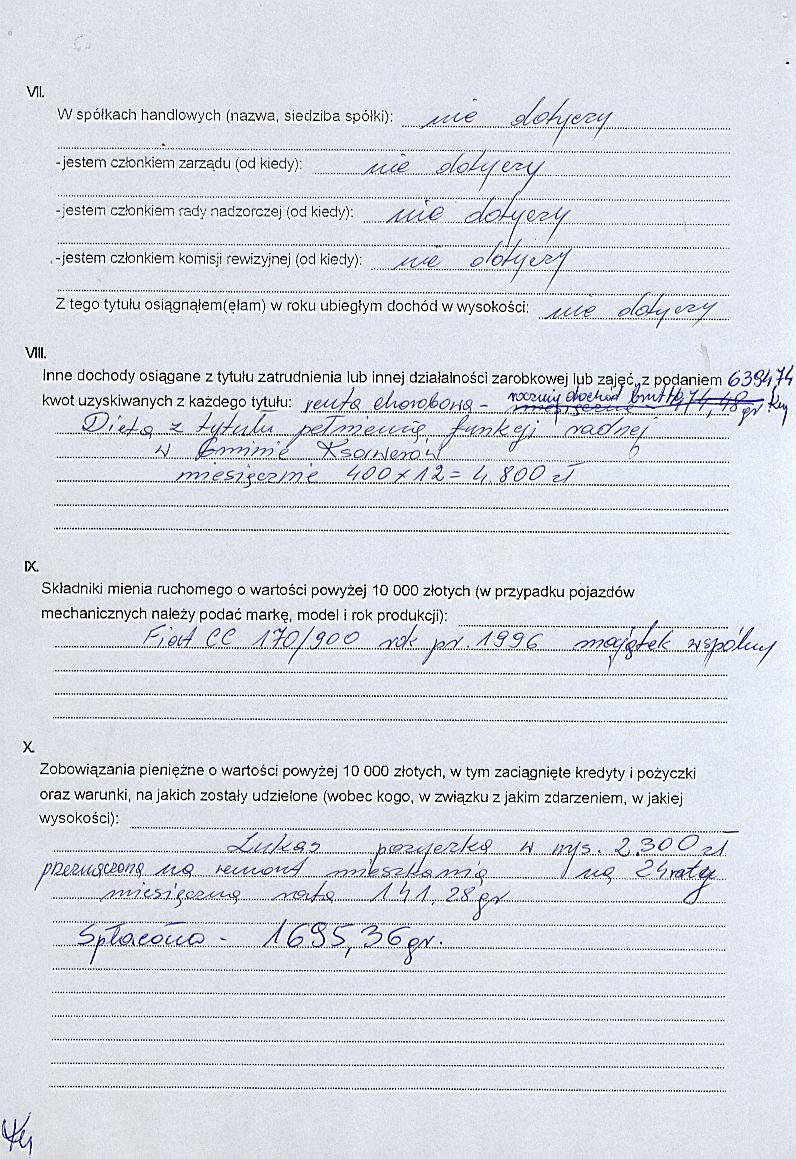 VII.
W spółkach handlowych (nazwa, siedziba spółki): nie dotyczy
-jestem członkiem zarządu (od kiedy): nie dotyczy
-jestem członkiem rady nadzorczej (od kiedy): nie dotyczy
-jestem członkiem komisji rewizyjnej (od kiedy): nie dotyczy
Z tego tytułu osiągnąłem(ęłam) w roku ubiegłym dochód w wysokości: nie dotyczy
VIII.
Inne dochody osiągane z tytułu zatrudnienia lub innej działalności zarobkowej lub zajęć, z podaniem 6394 74
kwot uzyskiwanych z każdego tytułu: renta chorobowa - roczny dochód brutto gr
Dieta z tytułu pełnienia funkcji radnej
w Gminie Ksawerów
miesięcznie 400 x 12 = 4.800 zł
IX.
Składniki mienia ruchomego o wartości powyżej 10 000 złotych (w przypadku pojazdów
mechanicznych należy podać markę, model i rok produkcji):
Fiat CC 170/900 rok pr. 1996 majątek wspólny
X.
Zobowiązania pieniężne o wartości powyżej 10 000 złotych, w tym zaciągnięte kredyty i pożyczki
oraz warunki, na jakich zostały udzielone (wobec kogo, w związku z jakim zdarzeniem, w jakiej
wysokości):
Lukas pożyczka w wys. 2.300 zł
przeznaczona na remont mieszkania na 24 raty
miesięczna rata 141,28 gr
Spłacono - 1695,36 gr.